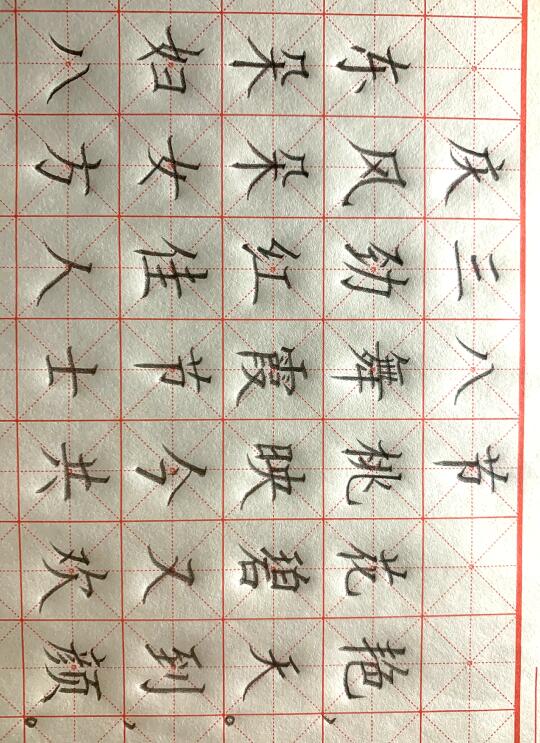 庆三八节
东风劲舞桃花艳，
朵朵红霞映碧天。
妇女佳节今又到，
八方人士共欢颜。